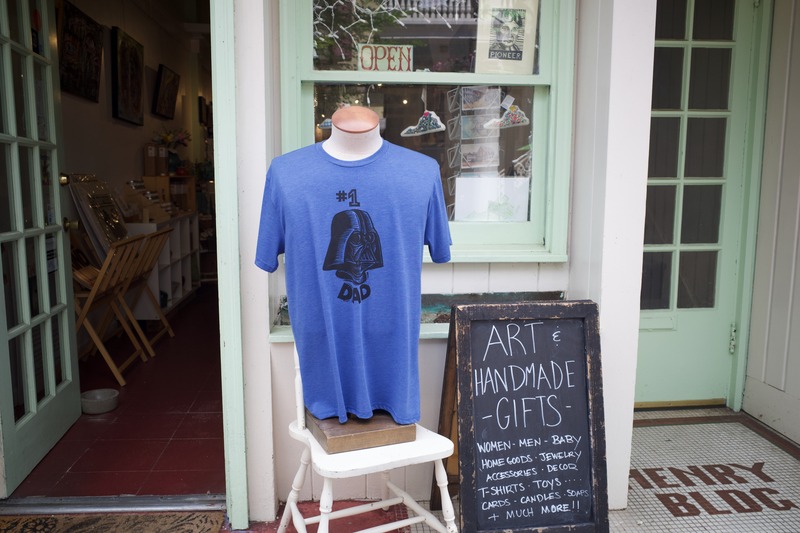 OPEN
PIONEER
#1
DAD
ART &
HANDMADE
- GIFTS -
WOMEN · MEN · BABY
HOME GOODS · JEWELRY
ACCESSORIES · DECOR
T-SHIRTS · TOYS ....
CARDS · CANDLES · SOAPS
+ MUCH MORE!!
HENRY
BLDG